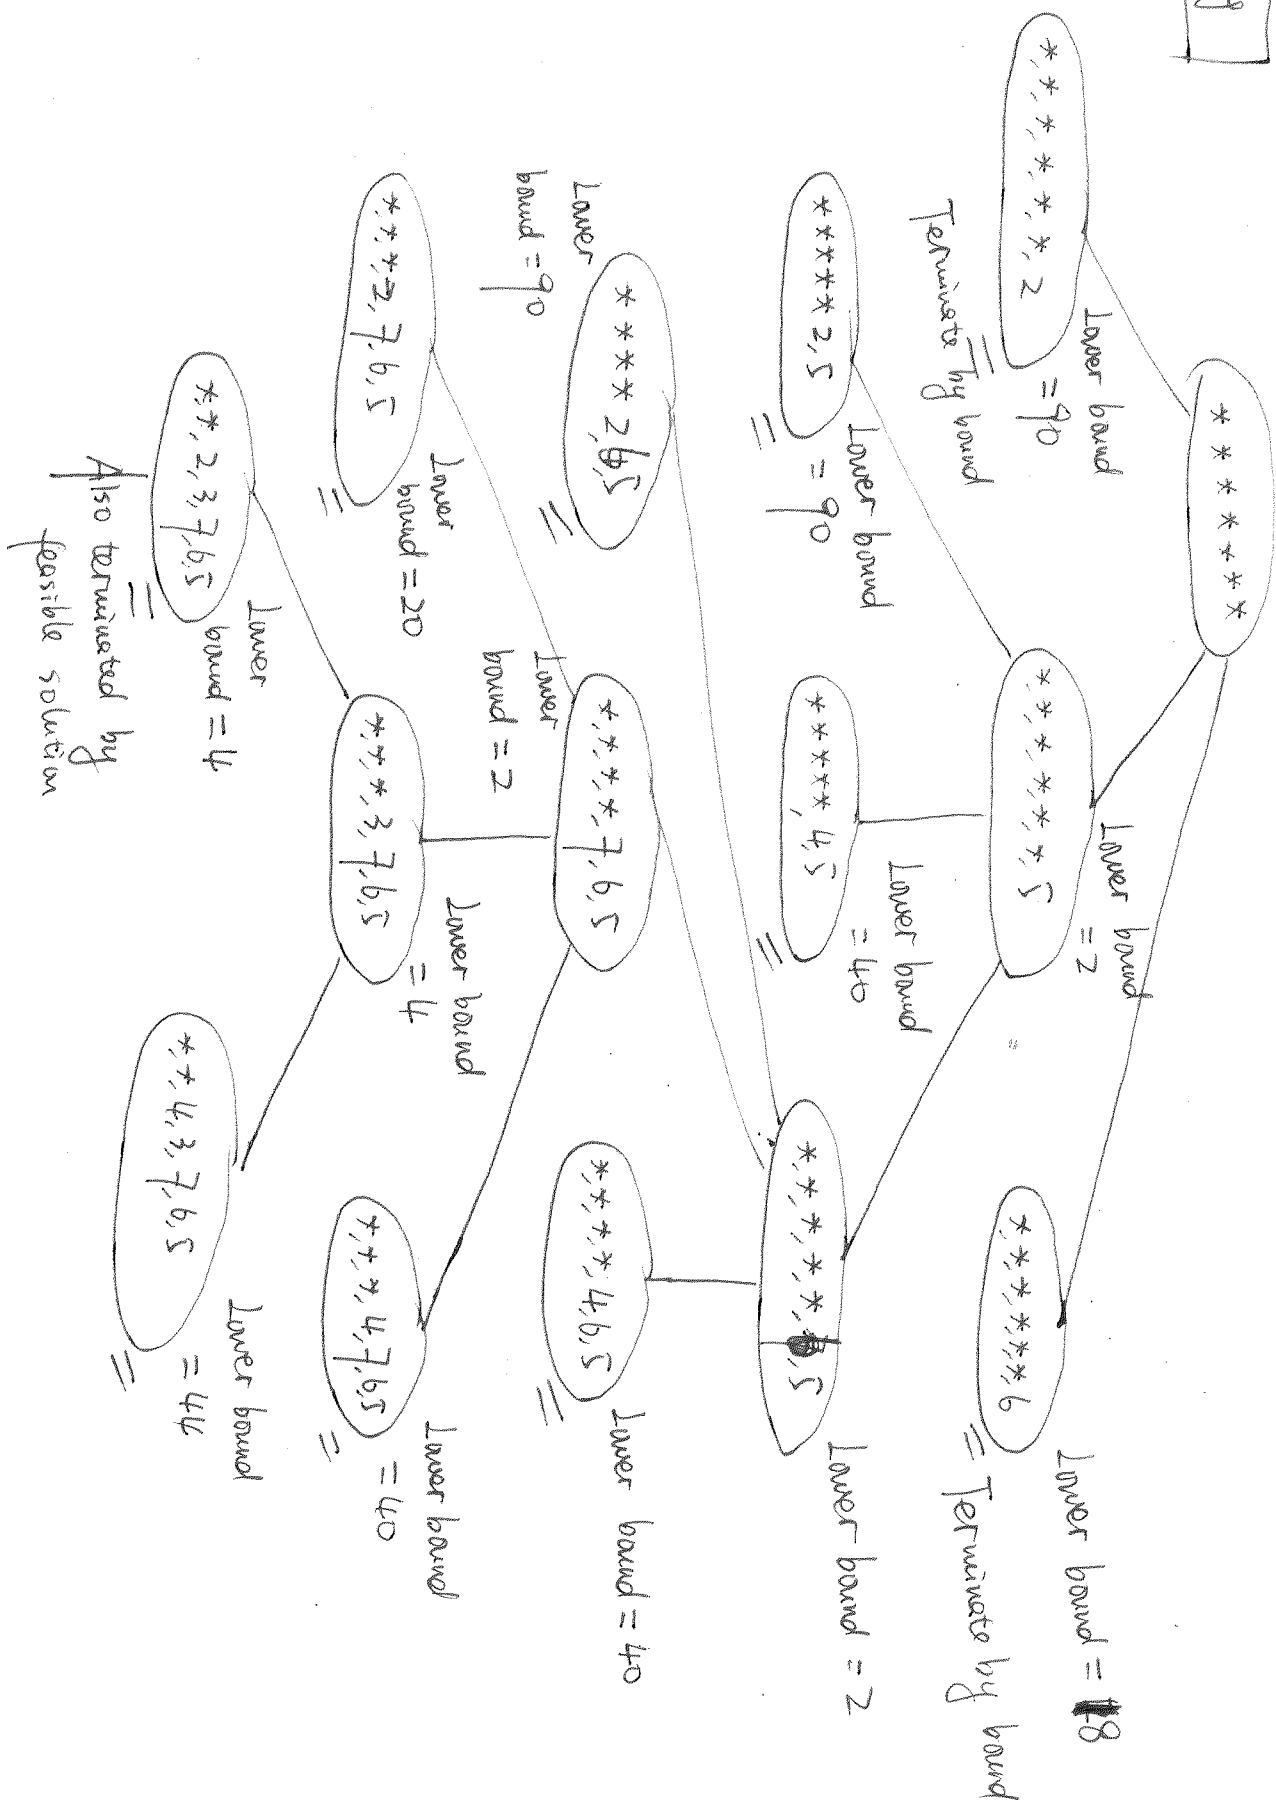 * * * * * * *
Lower bound
= 90
*, *, *, *, *, *, 2
Terminate by bound
Lower bound
= 2
*, *, *, *, *, *, 5
Lower bound = 8
*, *, *, *, *, *, 6
Terminate by bound
* * * * * 2, 5
Lower bound
= 90
* * * * *, 4, 5
Lower bound
= 40
*, *, *, *, *, , 5
Lower bound = 2
Lower
bound = 90
* * * * 2, 6, 5
*, *, *, *, 7, 6, 5
Lower
bound = 2
*, *, *, *, 4, 6, 5
Lower bound = 40
*, *, *, 2, 7, 6, 5
Lower
bound = 20
*, *, *, 3, 7, 6, 5
Lower bound
= 4
*, *, *, 4, 7, 6, 5
Lower bound
= 40
*, *, 2, 3, 7, 6, 5
Lower
bound = 4
Also terminated by
feasible solution
*, *, 4, 3, 7, 6, 5
Lower bound
= 44